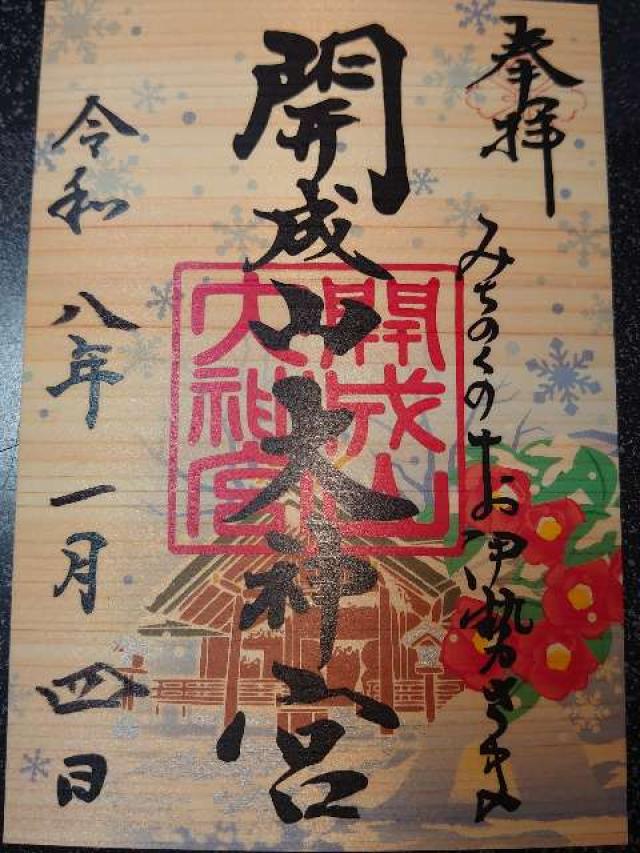 奉拝
みちのくのお伊勢さま
開成山大神宮
開成山
大神宮
令和 八年 一月 四日